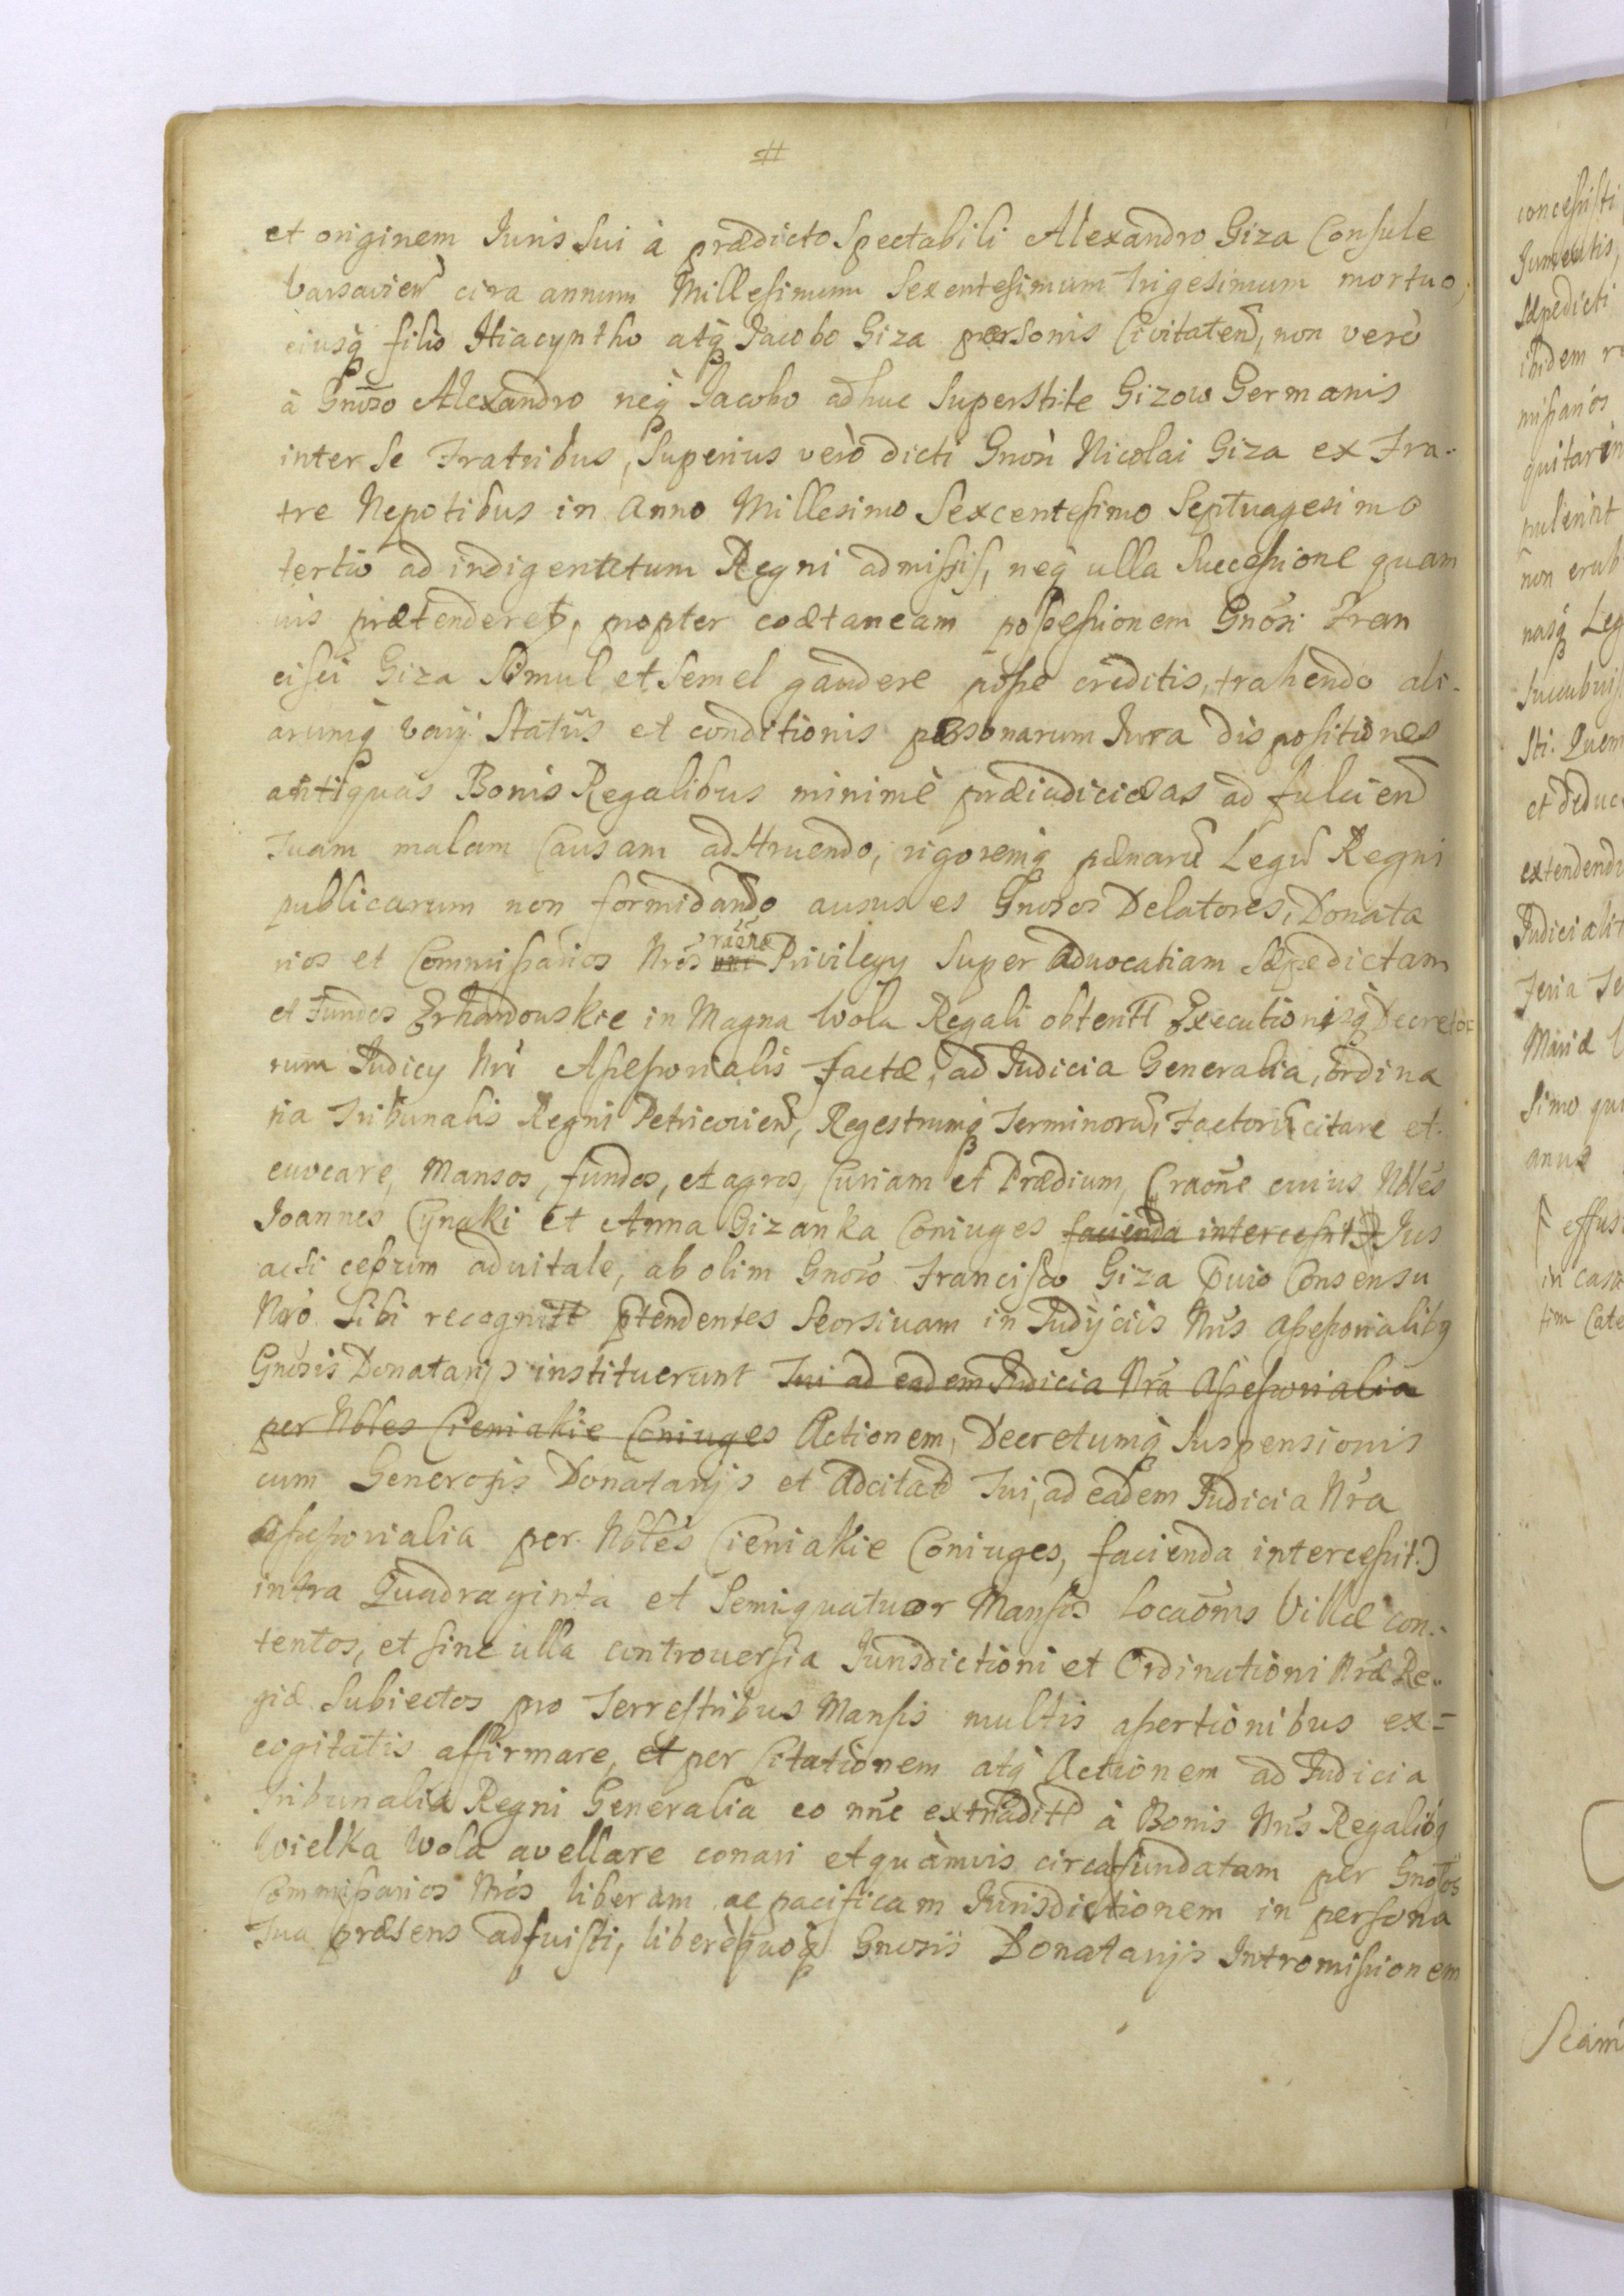 #
et originem Juris Sui à prædicto Spectabili Alexandro Giza Consule
Varsavien̄ circa annum Millesimum Sexentesimum trigesimum mortuo,
eiusq̣ filio Hiacyntho atq̣ Jacobo Giza personis Civitaten̄, non verò
à Gnōso Alexandro neq̣ Jacobo adhuc Superstite Gizow Germanis
inter Se Fratribus, Superius verò dicti Gnōri Nicolai Giza ex Fra-
tre Nepotibus in Anno Millesimo Sexcentesimo Septuagesimo
tertio ad indigenatum Regni admissis, neq̣ ulla Successione quam
vis prætenderet, propter coætaneam possessionem Gnōsi Fran
cisci Giza Simul et Semel gaudere posse creditis, trahendo ali-
arumq̣ varij Statūs et conditionis personarum Jura dispositiones
antiquas Bonis Regalibus minimè præiudiciosas ad fulcien̄d
Tuam malam Causam adstruendo, rigoremq̣ pænarū Legū Regni
publicarum non formidando ausus es Gnosos Delatores, Donata
rios et Commissarios Nrōs raōne Privilegy Super Advocatiam Sæpedictam
et Fundos in Magna Wola Regali obtenti Executionisq̣ Decreto=
rum Judicy Nri Assessorialis factæ, ad Judicia Generalia, ordina
ria Tribunalis Regni Petricovien̄, Regestrumq̣ Terminorū, Factorū citare et
evocare, Mansos, fundos, et agros, Curiam et Prædium, (raōne cuius Nbles
Joannes Cynaki et Anna Gizanka Coniuges facienda intercessit) Jus
acsi cessum advitale, ab olim Gnoso Francisco Giza Consensu
Nro Sibi recognitt ptendentes Seorsivam in Judijciis Nris Assessorialibq
Gnosis Donatarijs instituerunt Tui ad eadem Judicia Nra Assessorialia
per Nbles Cieniakie Coniuges Actionem, Decretumq̣ Suspensionis
cum Generosis Donatarijs et Adcitatō Tui, ad eadem Judicia Nra
Assessorialia per Nbles Cieniakie Coniuges, facienda intercessit)
intra Quadraginta et Semiquatuor Mansos locaōnis Villæ con-
tentos, et sine ulla controversia Jurisdictioni et Ordinationi Nræ Re-
giæ Subiectos pro Terrestribus Mansis multis assertionibus ex=
cogitatis affirmare, et per Citationem atq̣ Actionem ad Judicia
Tribunalia Regni Generalia eo nūc extraditt à Bonis Nris Regalibq
Wielka Wola avellare conari et quàmvis circa fundatam per Gnosos
Commissarios Nrōs liberam ac pacificam Jurisdictionem in persona
Tua præsens adfuisti, liberèquoq̣ Gnosis Donatarijs Intromissionem
concessisti
Jumentis,
Sæpedicti
ibidem
missarios
non erub
nasq̣ Leg
Succubuis
sti. Quem
et deduc
extendendu
Judicialit
feria
Mariæ
Simo qui
anus
effus
in cas
tim Cate